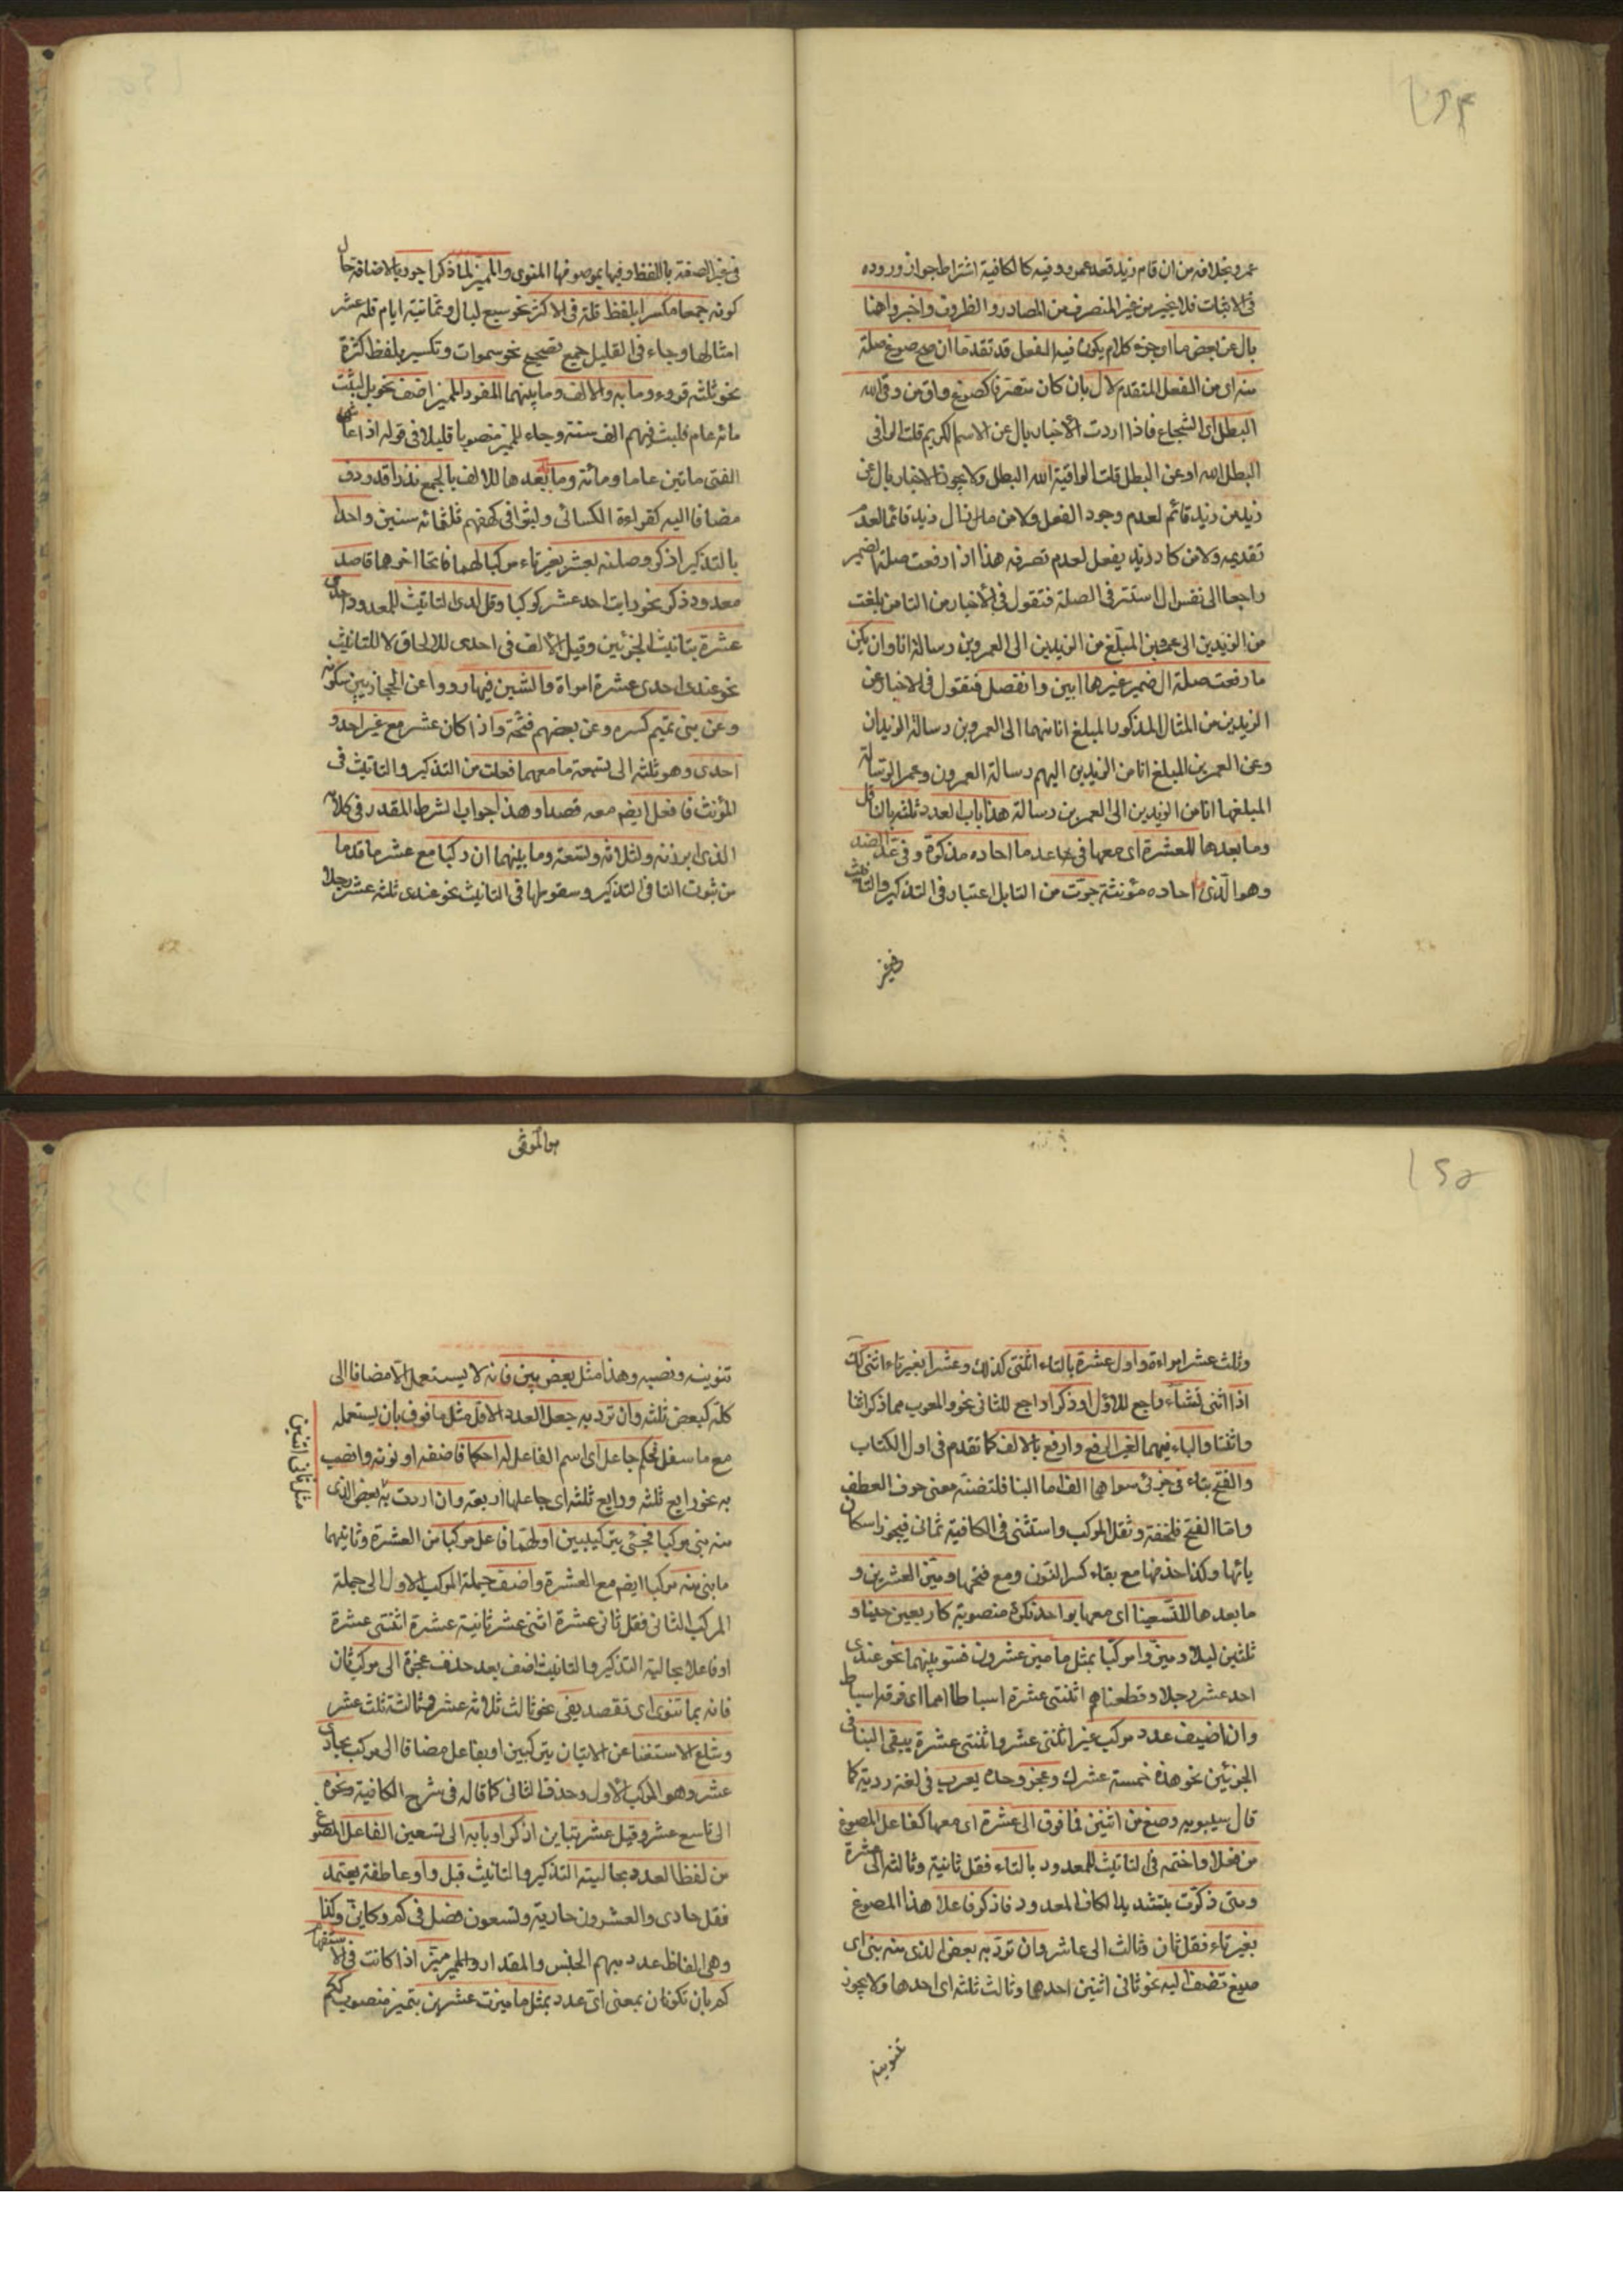 عمرو بخلافه من ان قام زيد قعد عمرو وفيه كالكافية اشتراط جواز وروده
فى الاثبات فلا يخبر عن غير المتصرف من المصادر والظروف واخبروا هنا
بال عن بعض ما اى جزء كلام يكون فيه الفعل قد تقدما ان صح صوغ صلة
منه اى من الفعل المتقدم لال بان كان متصرفا كصوغ واق من وقى الله
البطل اى الشجاع فاذا اردت الاخبار بال عن الاسم الكريم قلت الواقى
البطل الله او عن البطل قلت الواقيه الله البطل ولا يجوز الاخبار بال عن
زيد من زيد قائم لعدم وجود الفعل ولا من ما زال زيد قائما لعدم
تقديمه ولا من كاد زيد يفعل لعدم تصرفه هذا اذا رفعت صلة ال ضمير
راجعا الى نفس ال استتر فى الصلة فتقول فى الاخبار من التا من بلغت
من الزيدين الى عمرين المبلغ من الزيدين الى العمرين رسالة انا وان يكن
ما رفعت صلة ال ضمير غيرها ابين وانفصل فتقول فى الاخبار عن
الزيدين من المثال المذكور المبلغ انا منهما الى العمرين رسالة الزيدان
وعن العمرين المبلغ انا من الزيدين اليهم رسالة العمرون وعن الرسالة
المبلغها انا من الزيدين الى العمرين رسالة هذا باب العدد ثلثة بالتا قل
وما بعدها للعشرة اى معها فى عد ما احاده مذكرة وفى عد الضد
وهو الذى ما احاده مؤنثة جرد من التا بل اعتبار فى التذكير والتانيث
فى غير
فى غير الصفة باللفظ وفيها بموصوفها المنوى والمميز لما ذكر اجرر بالاضافة حال
كونه جمعا مكسرا بلفظ قلة فى الاكثر نحو سبع ليال وثمانية ايام فله عشر
امثالها وجاء فى القليل جمع تصحيح نحو سموات وتكسير بلفظ كثرة
نحو ثلثة قروء ومايه والالف وما بينهما المفرد المميز اضف نحو بل لبثت
مائة عام فلبث فيهم الف سنة وجاء المميز منصوبا قليلا فى قوله اذا عاش
الفتى ماتين عاما ومائة وما بعدها للالف بالجمع نذرا قد ردف
مضافا اليه كقراءة الكسائى ولبثوا فى كهفهم ثلثمائة سنين واحد
بالتذكير اذكر وصلنه بعشر بغير تاء مركبا لهما فاتحا اخرهما قاصد
معدود ذكر نحو رايت احد عشر كوكبا وقل لدى التانيث للمعدود احدى
عشرة بتانيث الجزئين وقيل الالف فى احدى للالحاق لا للتانيث
نحو عندى احدى عشرة امراة والشين فيها رووا عن الحجازيين سكونه
وعن بنى تميم كسره وعن بعضهم فتحة واذا كان عشر مع غير احد و
احدى وهو ثلثة الى تسعة ما معهما فعلت من التذكير والتانيث فى
المؤنث فافعل ايضم معه قصدا وهذا جواب الشرط المقدر فى كلامه
الذى ابرزته ولثلاثة وتسعة وما بينهما ان ركبا مع عشر ما قدما
من ثبوت التا فى التذكير وسقوطها فى التانيث نحو عندى ثلثة عشر رجلا
وثلث عشر امراءة واول عشرة بالتاء اثنتى كذلك وعشرا بغير تاء اثنى كك
اذا اثنى تشاء راجع للاول او ذكرا راجع للثانى نحو والمعرب مما ذكر اثنا
واثنتا والياء فيهما لغير الرفع وارفع بالالف كما تقدم فى اول الكتاب
والفتح بناء فى جزئى سواهما الف اما البنا فلتضمنه معنى حرف العطف
واما الفتح فلخفته وثقل المركب واستثنى فى الكافية ثمانى فيجوز اسكان
يائها وكذا حذفها مع بقاء كسر النون ومع فتحها وميز العشرين و
ما بعدها للتسعينا اى معها بواحد نكرة منصوبة كاربعين حينا و
ثلثين ليلا وميزوا مركبا بمثل ما ميز عشرون فسوينهما نحو عندى
احد عشر رجلا وقطعناهم اثنتى عشرة اسباطا امما اى فرقة اسباط
وان اضيف عدد مركب غير اثنتى عشر واثنتى عشرة يبقى البنا فى
الجزئين نحو هذه خمسة عشرك وعجز وحده يعرب فى لغة ردية كما
قال سيبويه وصغ من اثنين فما فوق الى عشرة اى معها كفاعل المصوغ
من فعلا واختمه فى التانيث للمعدود بالتاء فقل ثانية وثالثة الى عشرة
ومتى ذكرت بتشديد الكاف المعدود فاذكر فاعلا هذا المصوغ
بغير تاء فقل ثان وثالث الى عاشر وان ترد به بعض الذى منه بنى اى
صيغ تضف اليه نحو ثانى اثنين احدهما وثالث ثلثة اى احدها ولا يجوز
تنوينه
هو الموفق
تنوينه ونصبه وهذا مثل بعض بين فانه لا يستعمل الا مضافا الى
كله كبعض ثلثة وان ترد به جعل العدد الاقل مثل ما فوق بان يستعمله
مع ما سفل فحكم جاعل اى اسم الفاعل له احكما فاضفه او نونه وانصب
به نحو رابع ثلثة ورابع ثلثة اى جاعلها اربعة وان اردت به بعض الذى
مثل ثانى اثنين
منه بنى مركبا فجئ بتركيبين اولهما فاعل مركبا من العشرة وثانيهما
ما بنى منه مركبا ايضم مع العشرة واضف جملة المركب الاول الى جملة
المركب الثانى فقل ثانى عشرة اثنى عشر ثانية عشرة اثنتى عشرة
او فاعلا بحالية التذكير والتانيث اضف بعد حذف عجزه الى مركب ثان
فانه بما تنوى اى تقصد يفى نحو ثالث ثلاثة عشر وثالثة ثلث عشر
وشاع الاستغنا عن الاتيان بتركيبين او بفاعل مضافا الى مركب بحادى
عشر وهو المركب الاول وحذف الثانى كما قاله فى شرح الكافية ونحوه
الى تاسع عشر وقبل عشرين اذكر او بابه الى تسعين الفاعل المصوغ
من لفظ العدد بحالتيه التذكير والتانيث قبل واو عاطفة يعتمد
فقل حادى والعشرون حادية وتسعون فصل فى كم وكاين وكذا
وهى الفاظ عدد مبهم الجنس والمقدار والمميز ميز اذا كانت فى الاستفهام
كم بان تكون بمعنى اى عدد بمثل ما ميزت عشرين بتميز منصوب ككم